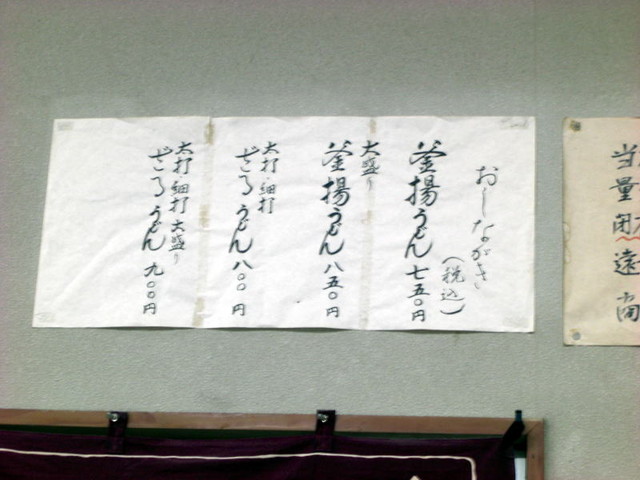 おしながき
(税込)
釜揚うどん 七五〇円
大盛り
釜揚うどん 八五〇円
太打・細打
ざるうどん 八〇〇円
太打・細打 大盛り
ざるうどん 九〇〇円
当
量
閉
遠